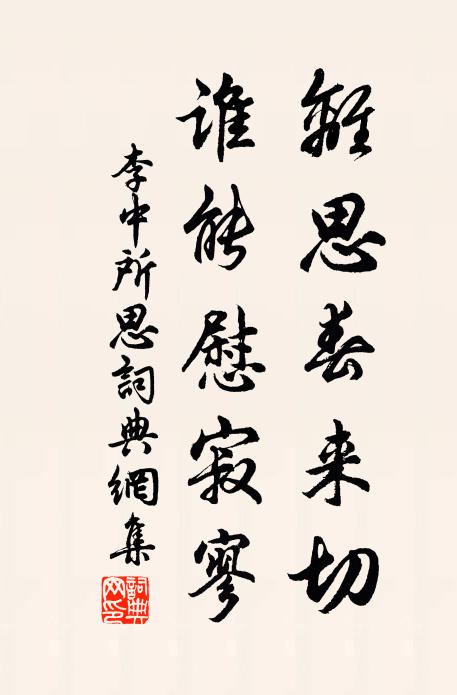 離思春来切
誰能慰寂寥
李中所思詞典網集
詞典網印